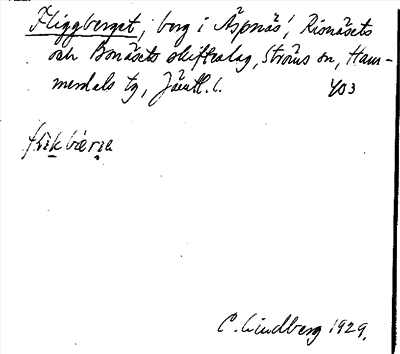 Fliggberget, berg i Äspnäs, Rionäsets
och Bonäsets skifteslag, Ströms sn, Ham-
merdals tg, Jämtl. l. 403
C. Lindberg 1929.